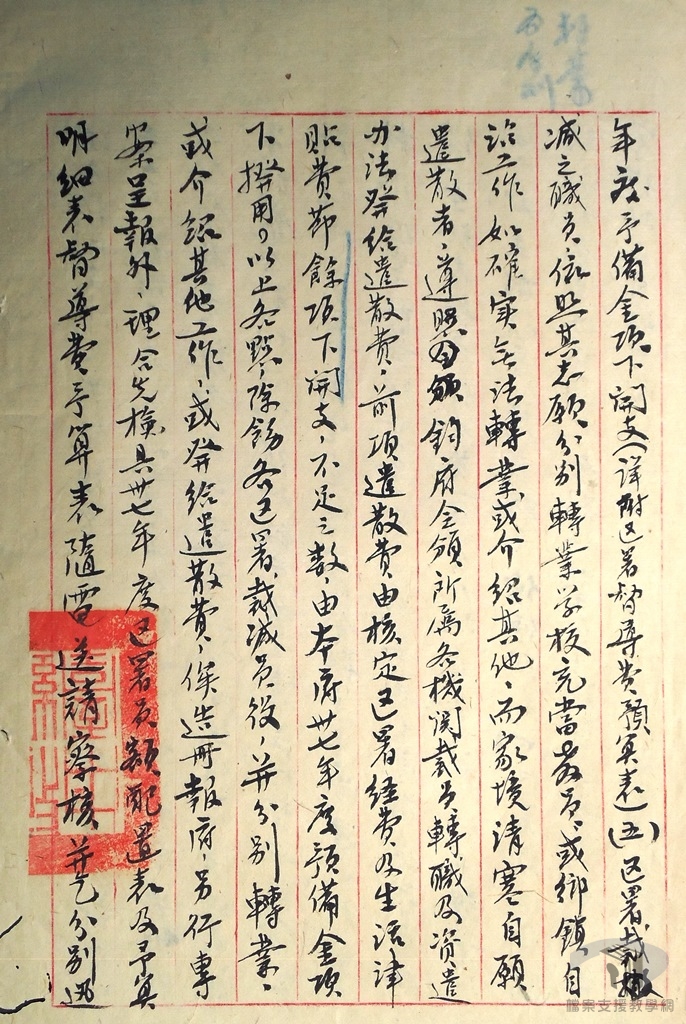 年度予備金項下開支(詳附区署督导費預算表)(五)区署裁
減之職員依照其志願分别轉業学校充當教員或鄉鎮自
治工作如確实无法轉業或介紹其他而家境清寒自願
遣散者遵照鈞府令頒所属各機関裁员轉職及资遣
办法發给遣散費前項遣散費由核定区署経費及生活津
貼費節餘項下開支不足之数由本府卅七年度預備金項
下撥用以上各點除飭各区署裁減员役并分别轉業、
或介紹其他工作、或發给遣散費俟造冊報府另行專
案呈報外理合先檢具卅七年度区署员額配置表及予算
明細表督導費予算表隨電送請察核并乞分别
檔案支援教學網